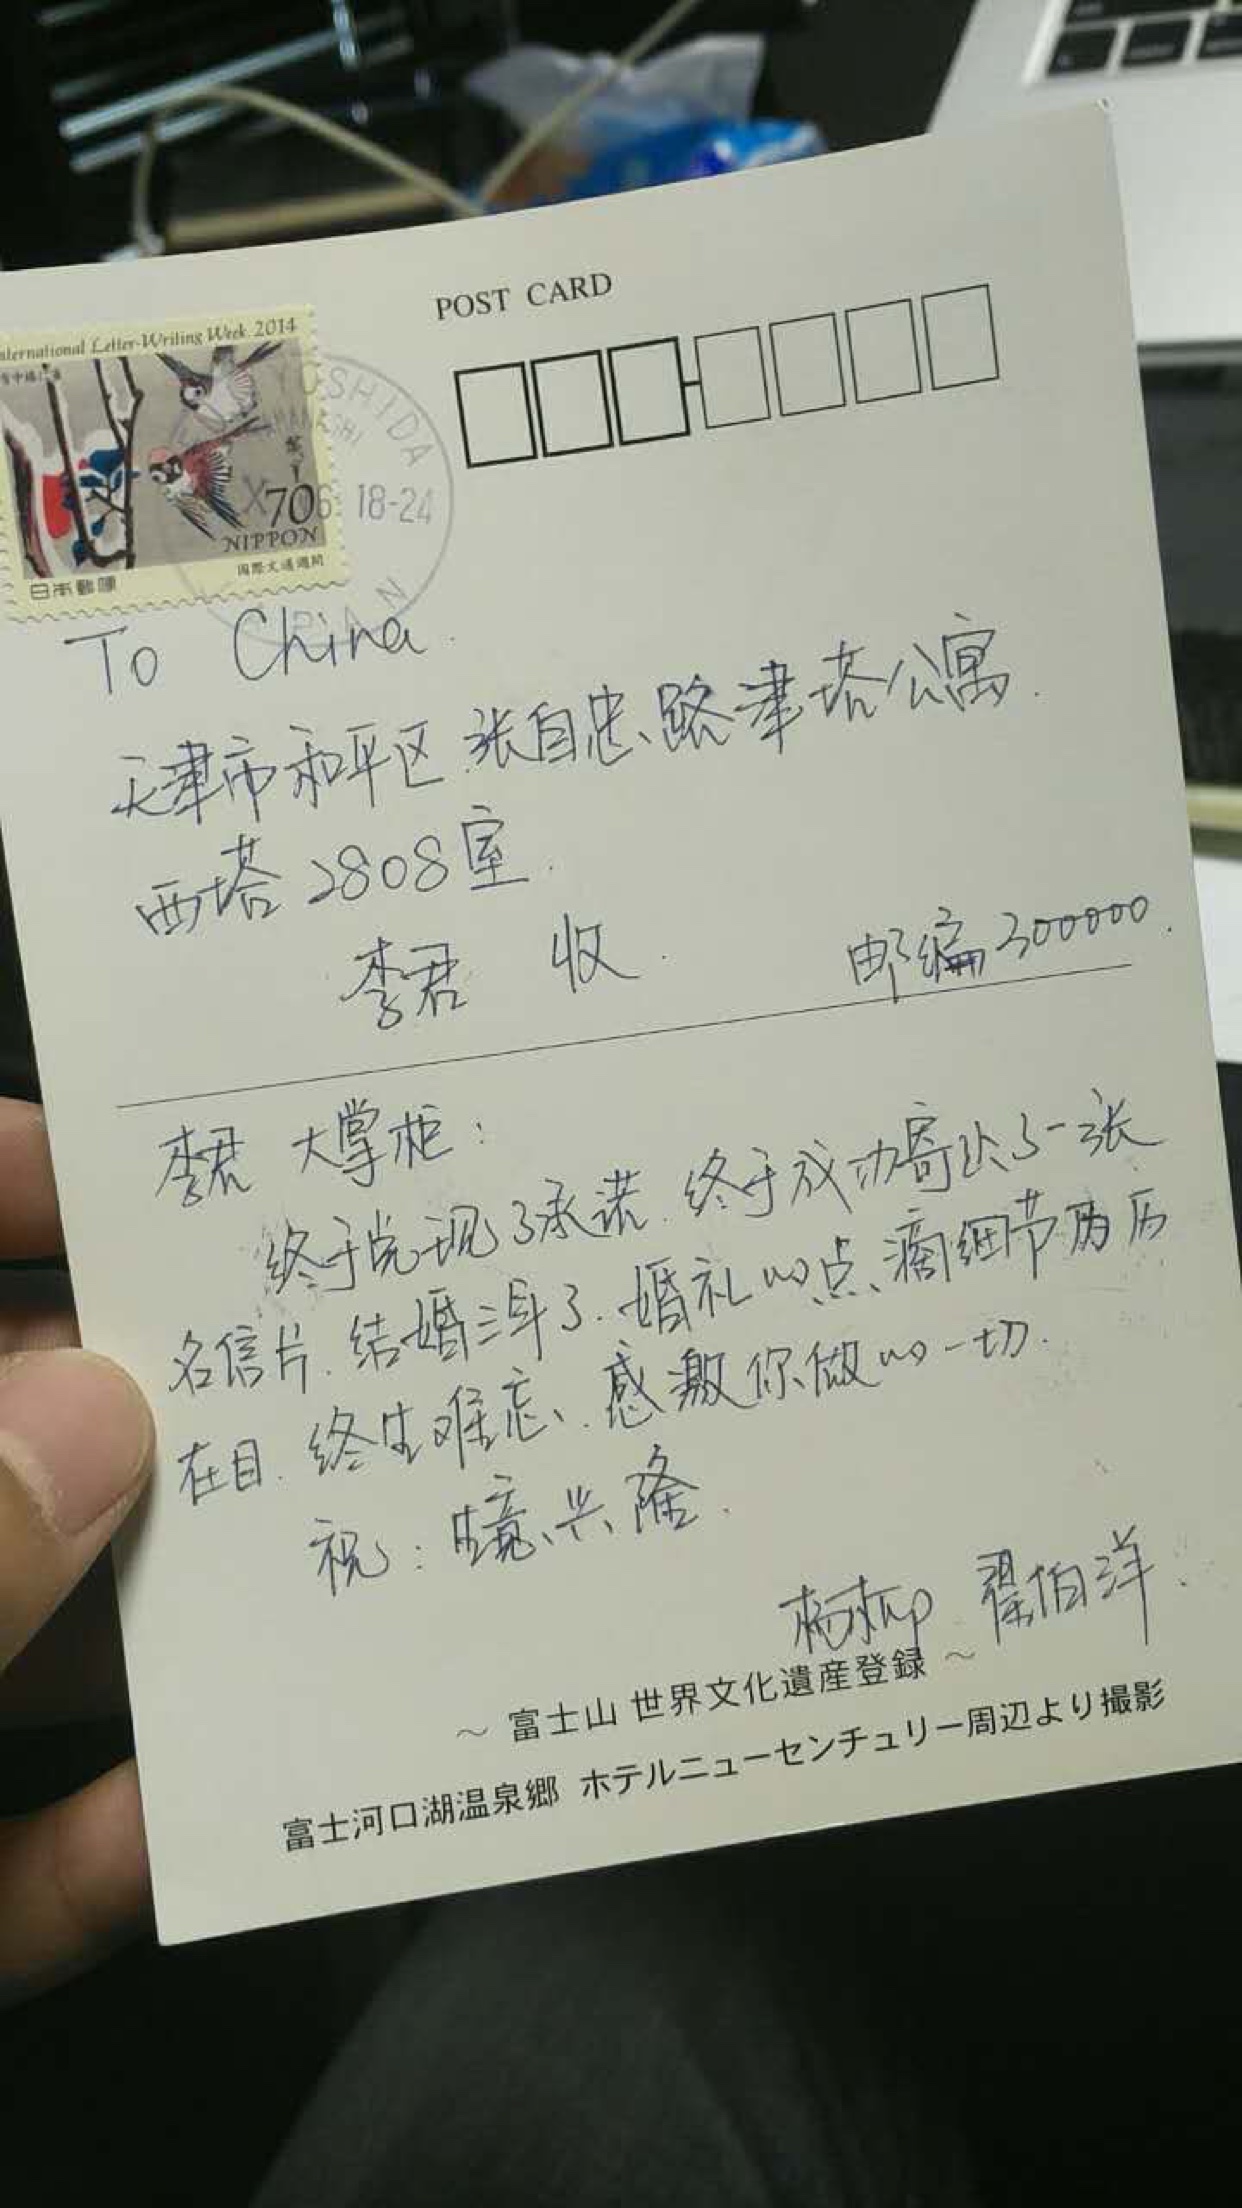 POST CARD
International Letter-Writing Week 2014
70
NIPPON
日本郵便
国際文通週間
YOSHIDA
18-24
To China.
天津市和平区张自忠路津塔公寓.
西塔2808室.
李君 收.
邮编300000.
李君 大掌柜:
终于兑现了承诺.终于成功寄出了一张
名信片.结婚三年了.婚礼的点滴细节历历
在目.终生难忘.感激你做的一切.
祝:生意兴隆.
杨 翟伯洋.
～ 富士山 世界文化遺産登録 ～
富士河口湖温泉郷 ホテルニューセンチュリー周辺より撮影